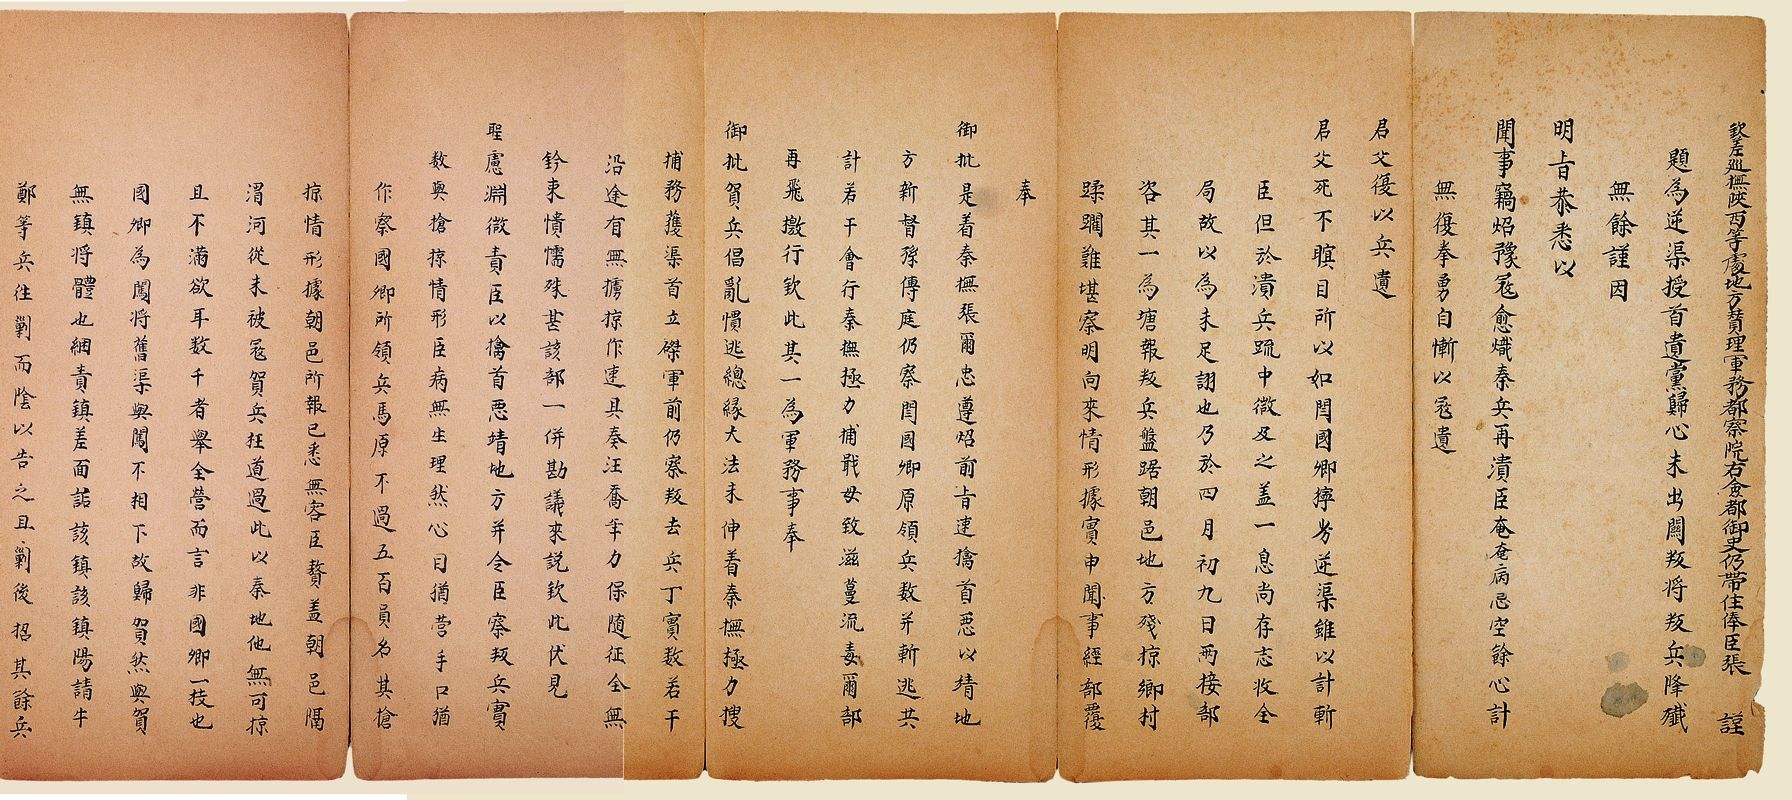 欽差巡撫陝西等處地方贊理軍務都察院右僉都御史仍帶住俸臣張　謹
題為逆渠授首遺黨歸心未出關叛將叛兵降殲
無餘謹因
明旨恭悉以
聞事竊炤豫寇愈熾秦兵再潰臣奄奄病忌空餘心計
無復拳勇自慚以寇遺
君父復以兵遺
君父死不瞑目所以如閆國卿擰労逆渠雖以計斬
臣但於潰兵疏中微及之盖一息尚存志收全
局故以為未足詡也乃於四月初九日兩接部
咨其一為塘報叛兵盤踞朝邑地方殘掠鄉村
蹂躪難堪察明向來情形據實申聞事經部覆
奉
御批是着秦撫張爾忠遵炤前旨速擒首惡以猜地
方新督孫傳庭仍察閆國卿原領兵数并斬逃共
計若干會行秦撫極力捕戢毋致滋蔓流毒爾部
再飛檄行欽此其一為軍務事奉
御批賀兵倡亂慣逃總緣大法未伸着秦撫極力搜
捕務獲渠首立磔軍前仍察叛去兵丁實数若干
沿途有無擄掠作速具奏汪喬年力保随征全無
鈐束憒懦殊甚該部一併勘議來説欽此伏見
聖慮淵微責臣以擒首惡靖地方并令臣察叛兵實
数與搶掠情形臣病無生理然心目猶營手口猶
作察國卿所領兵馬原不過五百員名其搶
掠情形據朝邑所報已悉無容臣贅盖朝邑隔
渭河從未被寇賀兵枉道過此以秦地他無可掠
且不滿欲耳数千者舉全營而言非國卿一技也
國卿為闖將舊渠與闖不相下故歸賀然與賀
無鎮將體也綑責鎮差面詬該鎮該鎮陽請牛
鄭等兵往剿而陰以告之且剿後招其餘兵